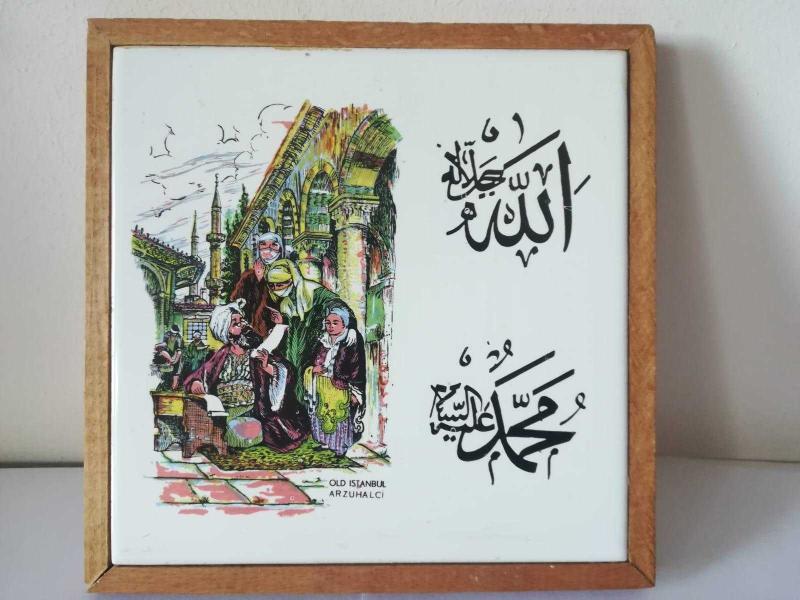 الله جل جلاله
محمد عليه السلام
OLD ISTANBUL
ARZUHALCİ